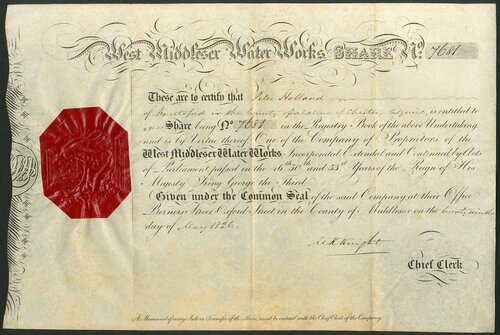 West Middlesex Water Works SHARE No. 7681
These are to certify that Peter Holland
of Knutsford in the County palatine of Chester Esquire, is entitled to
one Share being No 7681 in the Registry Book of the above Undertaking
and is by Virtue thereof One of the Company of Proprietors of the
West Middlesex Water Works. Incorporated Extended and Continued by Acts
of Parliament passed in the 46th 50th and 53d Years of the Reign of His
Majesty King George the third
Given under the Common Seal of the said Company at their Office
Berners Street Oxford Street in the County of Middlesex on the twenty ninth
day of May 1826.
Knight
Chief Clerk
A Memorial of every Sale or Transfer of the Share must be entered with the Chief Clerk of the Company.